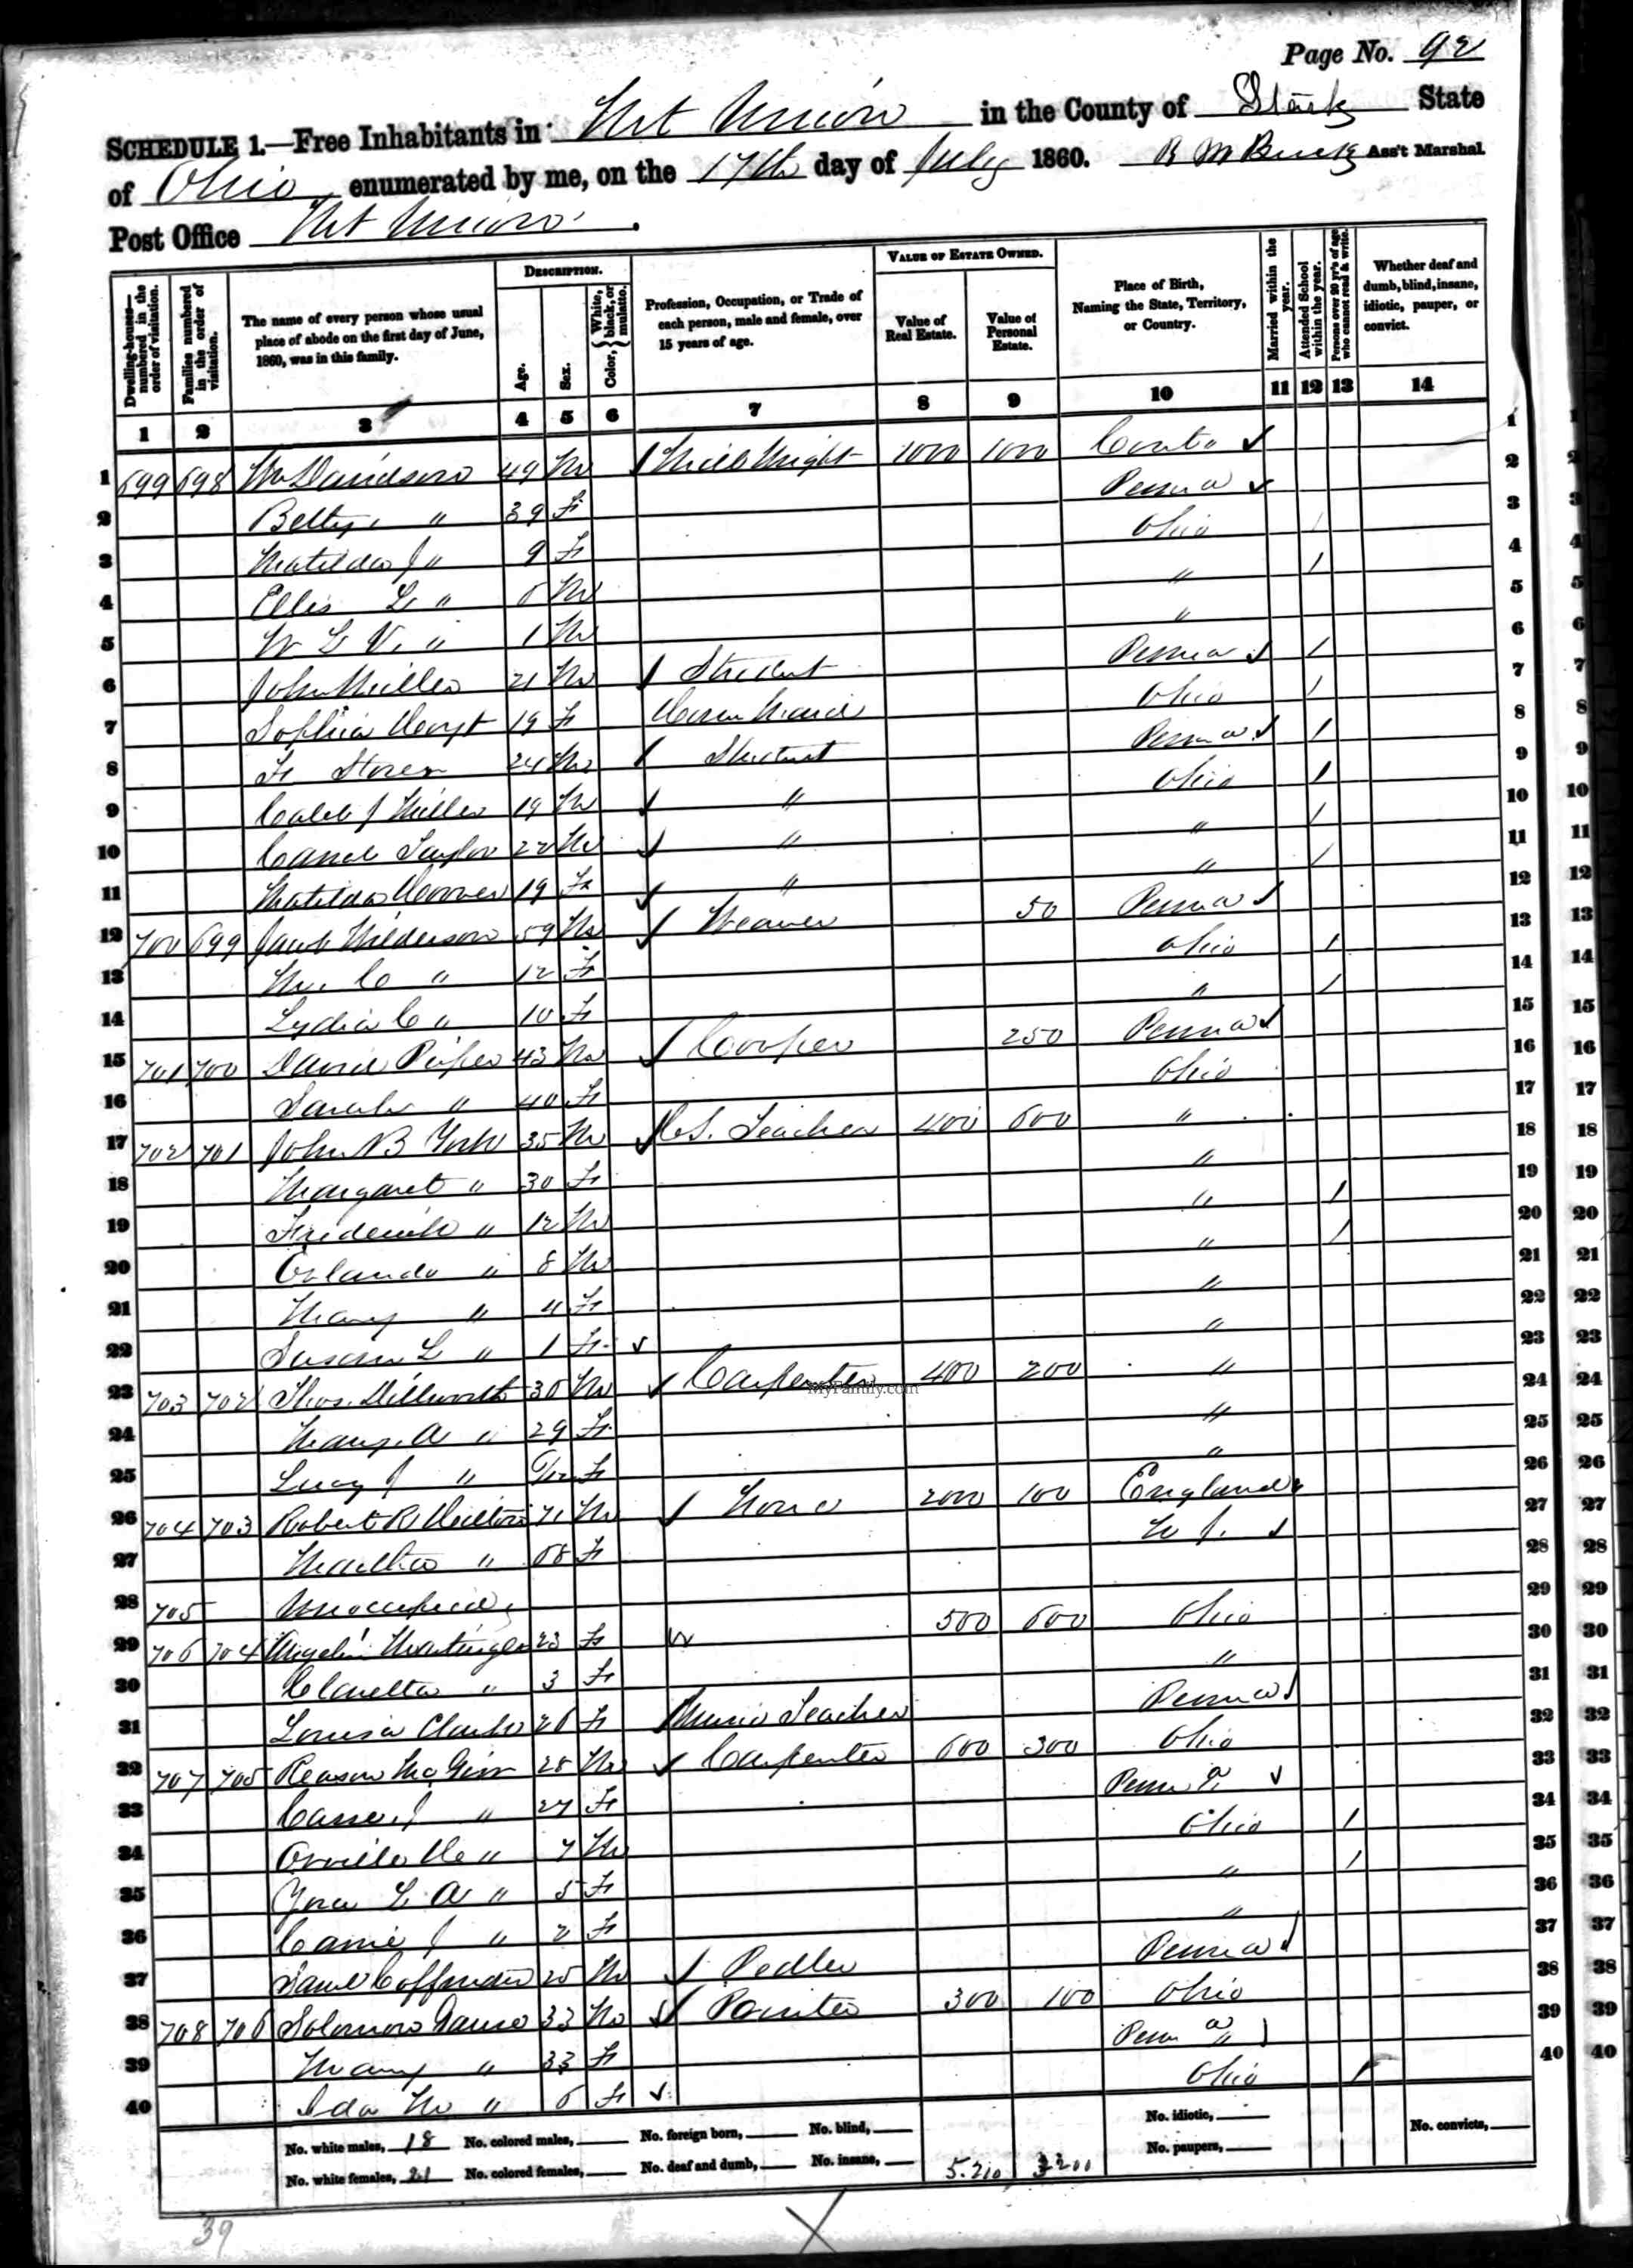 Page No. 92
SCHEDULE 1.—Free Inhabitants in Mt Union in the County of Stark State
of Ohio enumerated by me, on the 17th day of July 1860. R M Buck Ass't Marshal.
Post Office Mt Union.
Dwelling-houses—numbered in the order of visitation.
Families numbered in the order of visitation.
The name of every person whose usual place of abode on the first day of June, 1860, was in this family.
DESCRIPTION.
Age.
Sex.
Color, { White, black, or mulatto.
Profession, Occupation, or Trade of each person, male and female, over 15 years of age.
VALUE OF ESTATE OWNED.
Value of Real Estate.
Value of Personal Estate.
Place of Birth, Naming the State, Territory, or Country.
Married within the year.
Attended School within the year.
Persons over 20 yr's of age who cannot read & write.
Whether deaf and dumb, blind, insane, idiotic, pauper, or convict.
1 2 3 4 5 6 7 8 9 10 11 12 13 14
1 699 698 Wm Davidson 49 M Mill Wright 1000 1000 1
2 Betty " 39 F Penna 2
3 Matilda J " 9 F Ohio 3
4 Ellis L " 6 M " / 4
5 W L V. " 1 M " 5
6 John Miller 21 M Student Penna / 6
7 Sophia 19 F Ohio / 7
8 24 M Student Penna / 8
9 Caleb J Miller 19 M " Ohio / 9
10 Taylor 22 M " " / 10
11 Matilda Hoover 19 F " " / 11
12 700 699 Jacob Wilderson 59 M Weaver 50 Penna 12
13 M. C " 12 F Ohio / 13
14 Lydia C " 10 F " / 14
15 701 700 David Piper 43 M Cooper 250 Penna 15
16 Sarah " 40 F Ohio 16
17 702 701 John B York 35 M C.S. Teacher 400 600 " 17
18 Margaret " 30 F " 18
19 Frederick " 12 M " / 19
20 Orlando " 8 M " / 20
21 Mary " 4 F " 21
22 Susan L " 1 F " 22
23 703 702 Thos. Dillworth 30 M Carpenter 400 200 " 23
24 Mary. A " 29 F " 24
25 Lucy J " F " 25
26 704 703 Robert R Hilton 71 M None 2000 100 England 26
27 Martha " 68 F N J. 27
28 705 Unoccupied 28
29 706 704 23 F 500 600 Ohio 29
30 Claretta " 3 F " 30
31 Louisa Clark 26 F Music Teacher Penna 31
32 707 705 Reason McGirr 28 M Carpenter 600 300 Ohio 32
33 J " 27 F Penna 33
34 Orville " 7 M Ohio / 34
35 L A " 5 F " / 35
36 Carrie J " 2 F " 36
37 Saml 25 M Pedler Penna 37
38 708 706 Solomon 33 M Painter 300 100 Ohio 38
39 Mary " 33 F Penna 39
40 Ida M " 6 F Ohio / 40
No. white males, 18 No. colored males, No. foreign born, No. blind, No. idiotic, No. convicts,
No. white females, 21 No. colored females, No. deaf and dumb, No. insane, 5.210 3200 No. paupers,
39
MyFamily.com